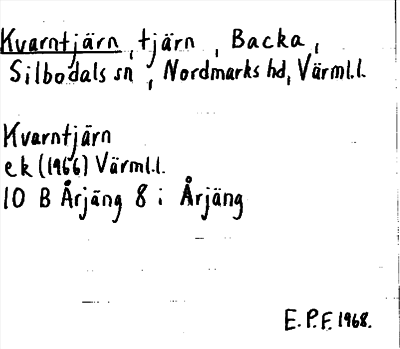 Kvarntjärn, tjärn, Backa,
Silbodals sn, Nordmarks hd, Värml.l.
Kvarntjärn
ek (1966) Värml.l.
10 B Årjäng 8 i Årjäng
E.P.F. 1968.